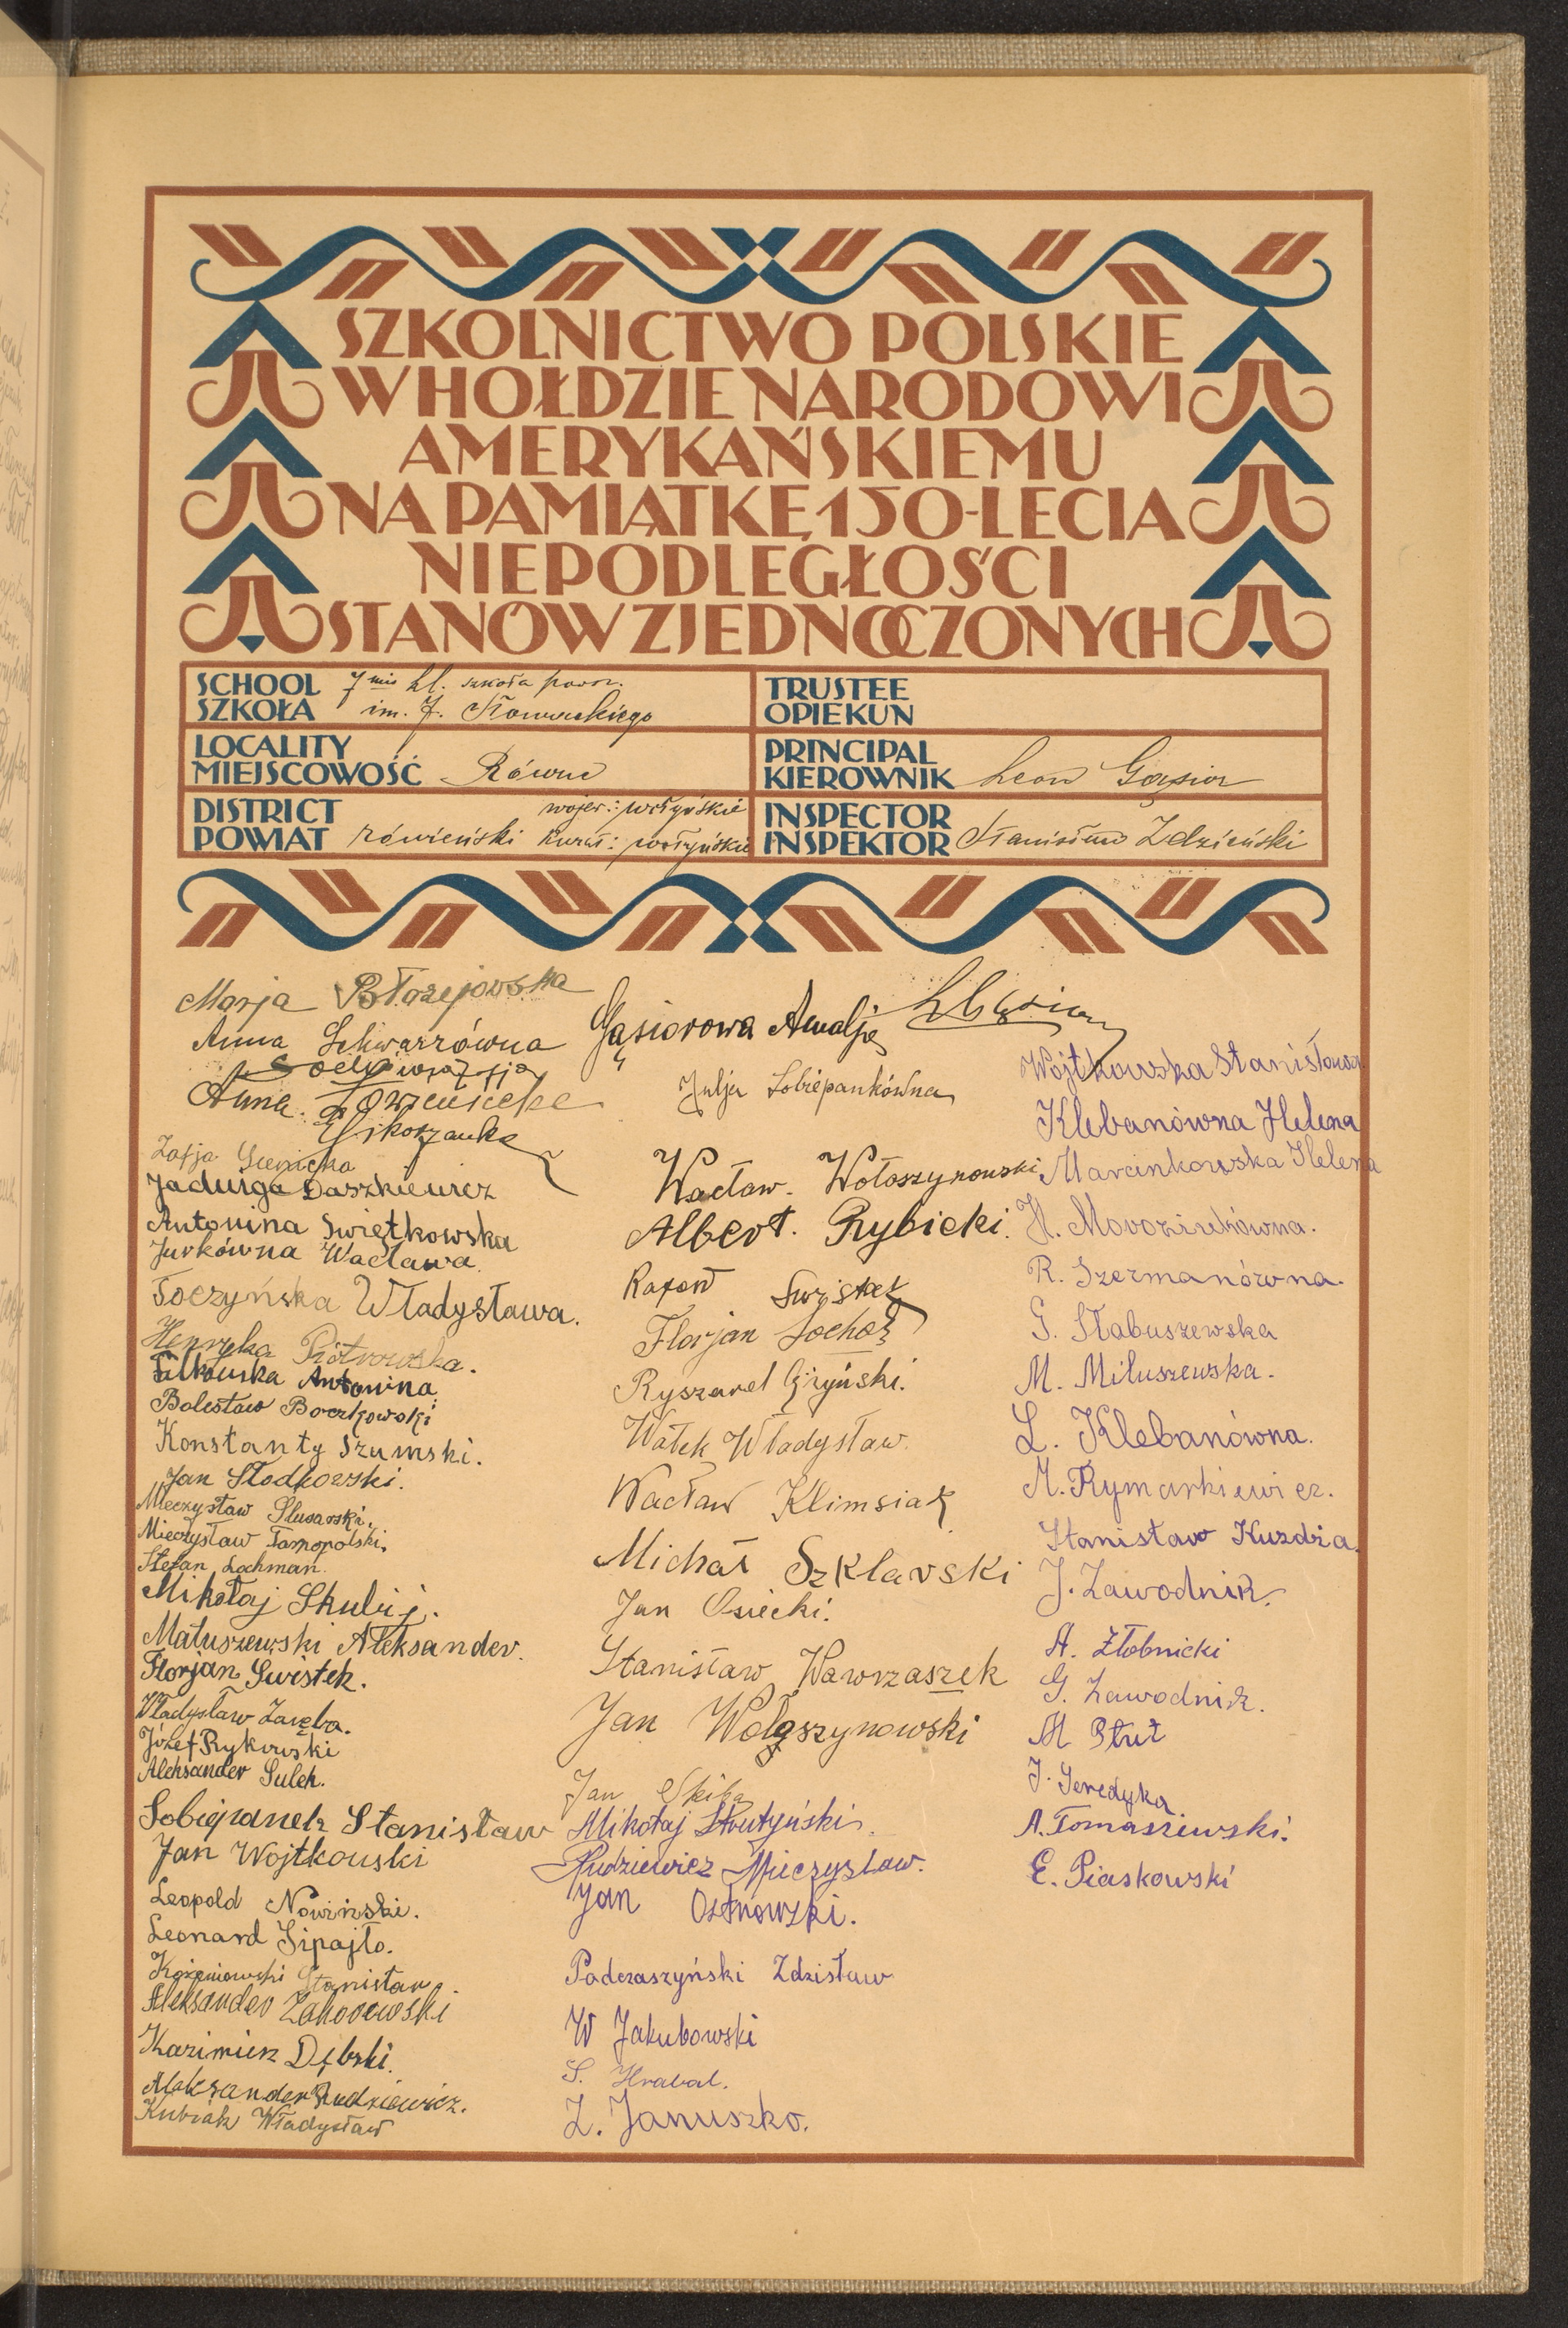 SZKOLNICTWO POLSKIE
W HOŁDZIE NARODOWI
AMERYKAŃSKIEMU
NA PAMIĄTKĘ 150-LECIA
NIEPODLEGŁOŚCI
STANÓW ZJEDNOCZONYCH
SCHOOL
SZKOŁA
7 mio kl. szkoła pow.
im. J. Słowackiego
TRUSTEE
OPIEKUN
LOCALITY
MIEJSCOWOŚĆ
Równe
PRINCIPAL
KIEROWNIK
Leon Gąsior
DISTRICT
POWIAT
rówieński
wojew: wołyńskie
kurat: wołyńskie
INSPECTOR
INSPEKTOR
Stanisław Zdzieński
Marja Błażejowska
Anna Schwarzówna
Anna
Zofja
Jadwiga Daszkiewicz
Antonina Świętkowska
Jurkówna Wacława.
Toczyńska Władysława.
Henryka Piotrowska.
Filkowska Antonina
Bolesław Boczkowski
Konstanty Szumski.
Jan Słodkowski.
Mieczysław Slusarski.
Mieczysław Tarnopolski.
Stefan Lochman.
Mikołaj Skulij.
Matuszewski Aleksander.
Florjan Świstek.
Władysław Zaręba.
Józef Rykowski
Aleksander Sulek.
Sobiepanek Stanisław
Jan Wojtkowski
Leopold Nowiński.
Leonard Sipajło.
Korzeniowski Stanisław.
Aleksander Zahorowski
Kazimierz Dębski.
Aleksander Rudziewicz.
Kubiak Władysław
Gąsiorowa Amalja
Julja Sobiepankówna
Wacław. Wołoszynowski
Albert. Rybicki.
Rafał Świstek
Florjan Sochaż
Ryszard Giżyński.
Wątek Władysław.
Wacław Klimsiak
Michał Szklarski
Jan Osiecki.
Stanisław Wawrzaszek
Jan Wołoszynowski
Jan Skiba
Mikołaj Strutyński.
Rudziewicz Mieczysław.
Jan Ostrowski.
Podczaszyński Zdzisław
W Jakubowski
S. Hrabal.
Z. Januszko.
Wojtkowska Stanisława
Klebanówna Helena
Marcinkowska Helena
H. Morozinkówna.
R. Szermanówna.
G. Słabuszewska
M. Miluszewska.
L. Klebanówna.
M. Rymarkiewicz.
Stanisław Kuzdria.
J. Zawodnik.
A. Złobnicki
G. Zawodnik.
J. Seredyka
A. Tomaszewski.
E. Piaskowski